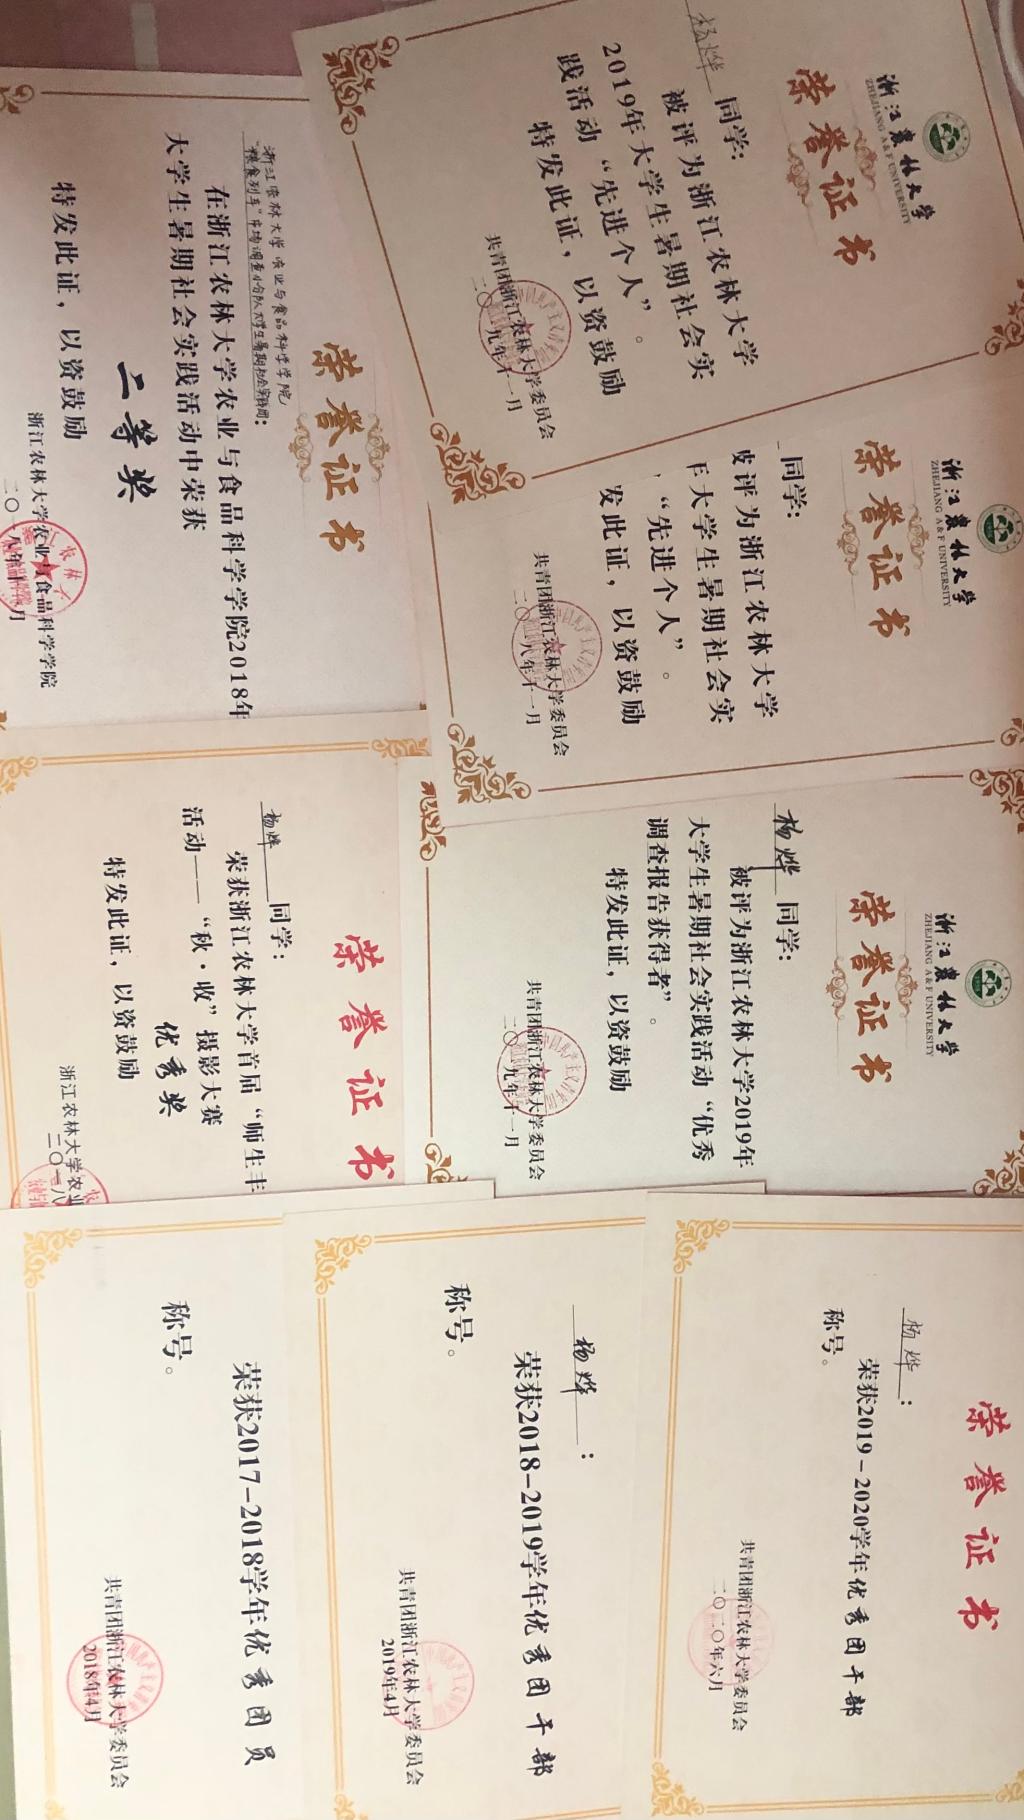 浙江农林大学
ZHEJIANG A&F UNIVERSITY
荣誉证书
杨烨 同学:
被评为浙江农林大学
2019年大学生暑期社会实
践活动“先进个人”。
特发此证,以资鼓励
共青团浙江农林大学委员会
二〇一九年十一月
浙江农林大学
ZHEJIANG A&F UNIVERSITY
荣誉证书
同学:
被评为浙江农林大学
年大学生暑期社会实
“先进个人”。
发此证,以资鼓励
共青团浙江农林大学委员会
二〇一八年十一月
荣誉证书
浙江农林大学农业与食品科学学院
“粮食列车”市场调查小分队大学生暑期社会实践团:
在浙江农林大学农业与食品科学学院2018年
大学生暑期社会实践活动中荣获
二等奖
特发此证,以资鼓励
浙江农林大学农业与食品科学学院
浙江农林大学
ZHEJIANG A&F UNIVERSITY
荣誉证书
杨烨 同学:
被评为浙江农林大学2019年
大学生暑期社会实践活动“优秀
调查报告获得者”。
特发此证,以资鼓励
共青团浙江农林大学委员会
二〇一九年十一月
荣誉证书
杨烨 同学:
荣获浙江农林大学首届“师生丰
活动——“秋·收”摄影大赛
优秀奖
特发此证,以资鼓励
浙江农林大学农业
二〇一八
荣誉证书
杨烨:
荣获2019-2020学年优秀团干部
称号。
共青团浙江农林大学委员会
二〇二〇年六月
杨烨:
荣获2018-2019学年优秀团干部
称号。
共青团浙江农林大学委员会
2019年4月
荣获2017-2018学年优秀团员
称号。
共青团浙江农林大学委员会
2018年4月